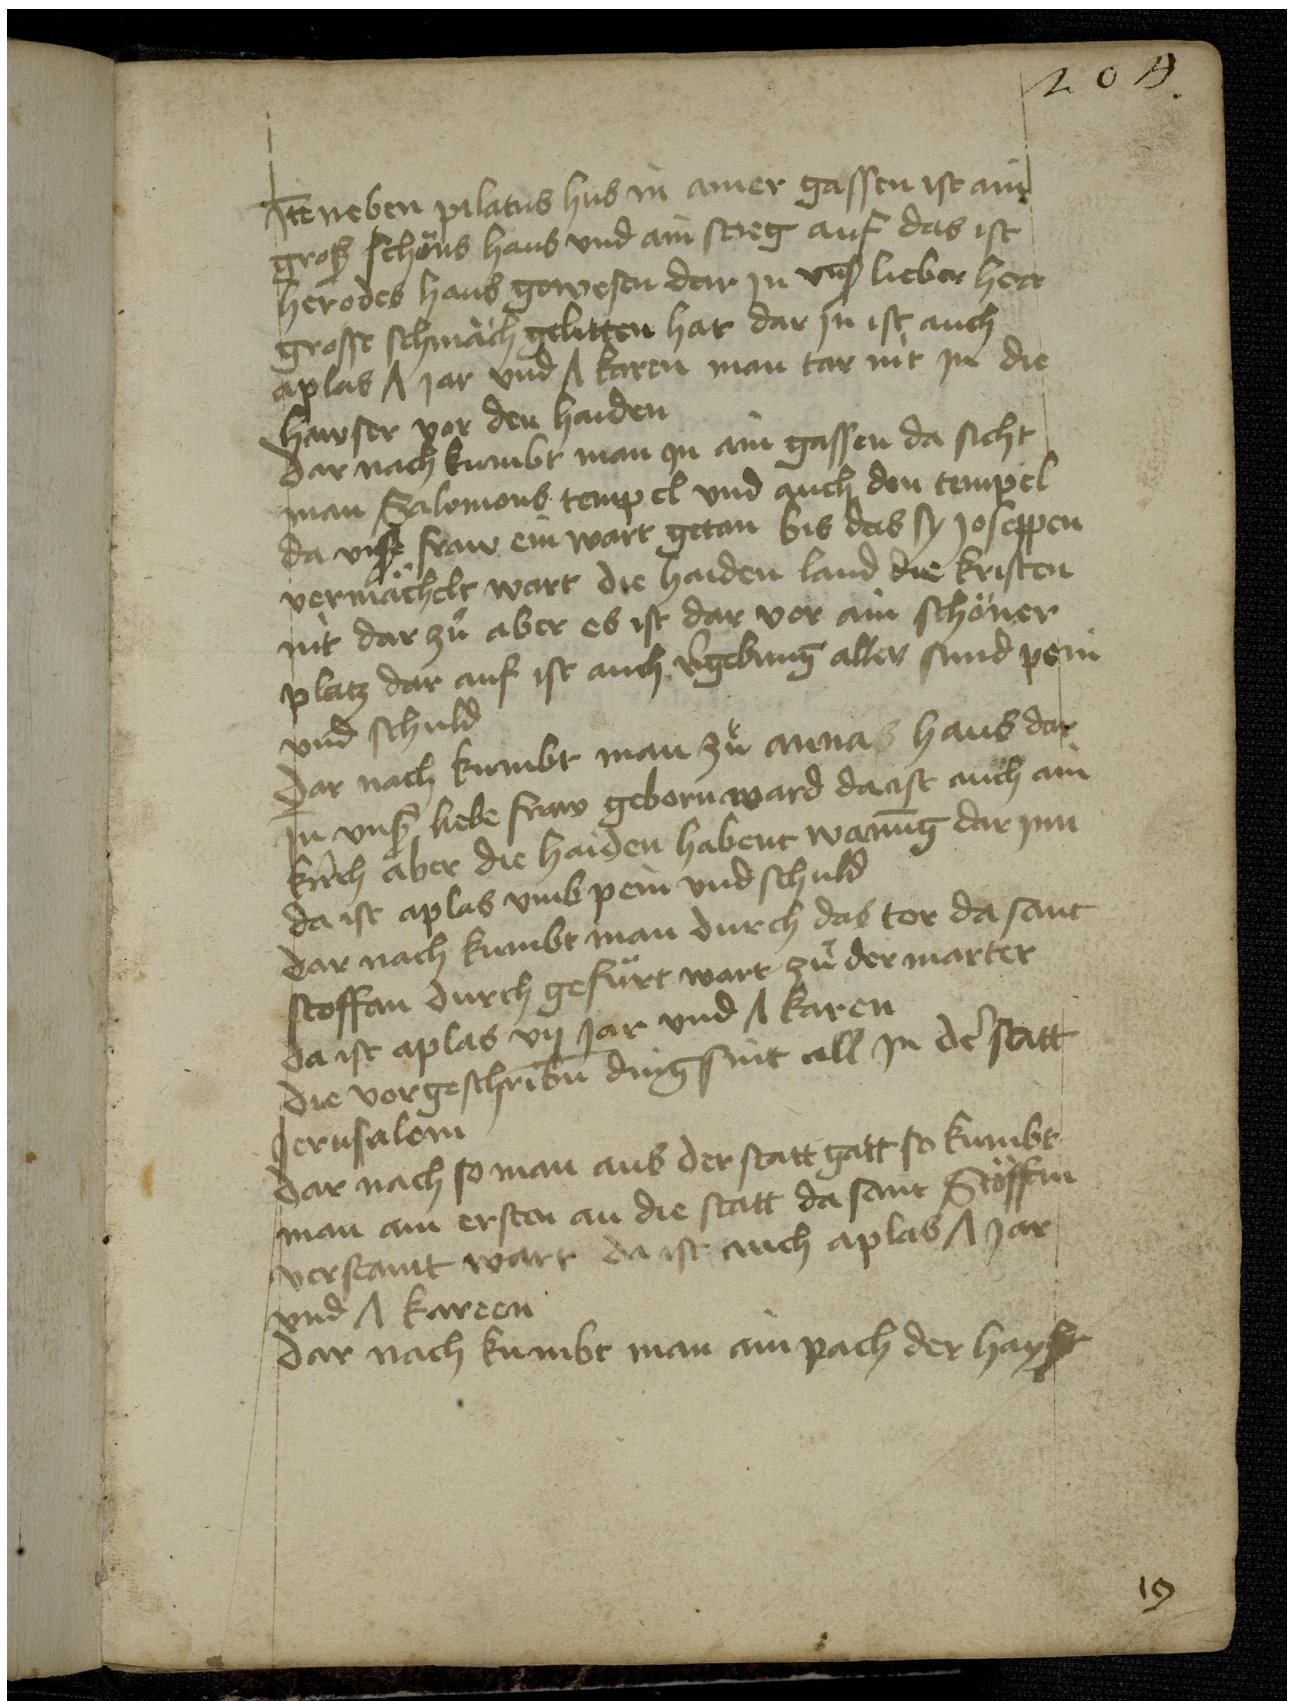 209.
Itē neben pilatus hus in ainer gassen ist ain
groß schöns haus und ain steg auf das ist
herodes haus gewesen dar in vnß lieber herr
grosse schmäch gelitten hat dar in ist auch
aplas Λ jar und Λ karen man tar nit in die
hawser vor den haiden
Dar nach kumbt man in ain gassen da sicht
man Salomons tempel und auch den tempel
da vnße fraw ein wart getan bis das sy joseppen
vermächelt wart die haiden land die kristen
nit dar zů aber es ist dar vor ain schöner
platz dar auf ist auch v̾gebung aller sund pein
und schuld
Dar nach kumbt man zů annas haus dar
in vnß liebe fraw geborn ward da ist auch ain
kirch aber die haiden habent wanūg dar inn
da ist aplas vmb pein und schuld
Dar nach kumbt man durch das tor da sant
stoffan durch gefürt wart zů der marter
da ist aplas vij jar und Λ karen
Die vorgeschribn̄ ding sint all in de̾ statt
Jerusalem
Dar nach so man aus der statt gatt so kumbt
man am ersten an die statt da sant Stöffan
verstaint wart da ist auch aplas Λ jar
und Λ kareen
Dar nach kumbt man ain pach der hayst
19